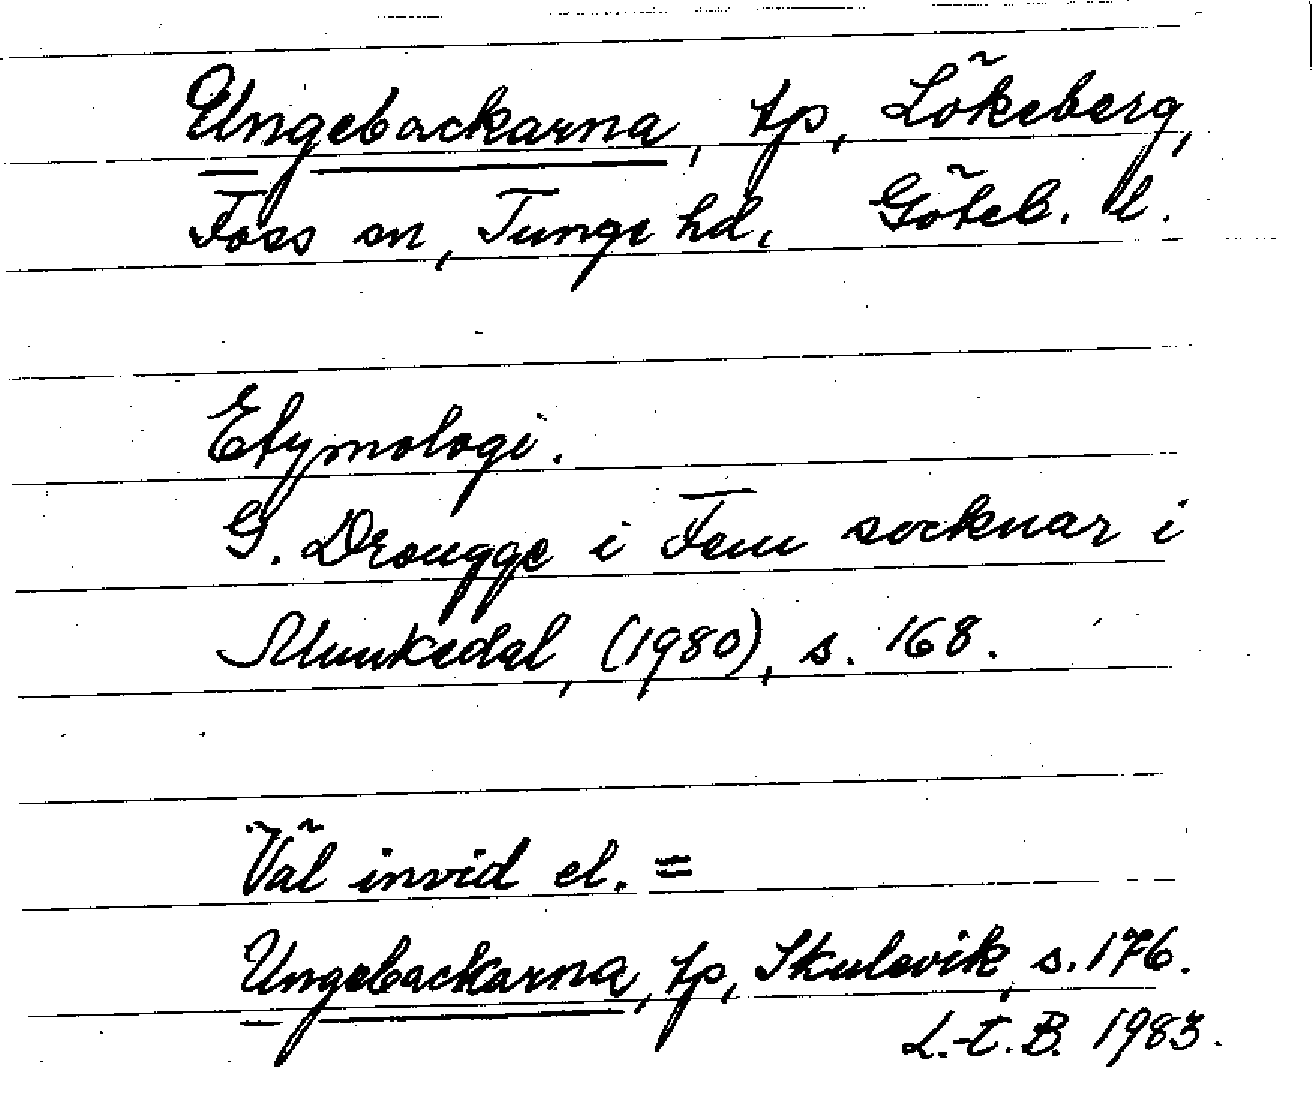 Ungebackarna, tp, Lökeberg,
Foss sn, Tunge hd, Göteb. l.
Etymologi.
G. Drougge i Fem socknar i
Munkedal, (1980), s. 168.
Väl invid el. =
Ungebackarna, tp, Skulevik, s. 176.
L.-t. B. 1983.